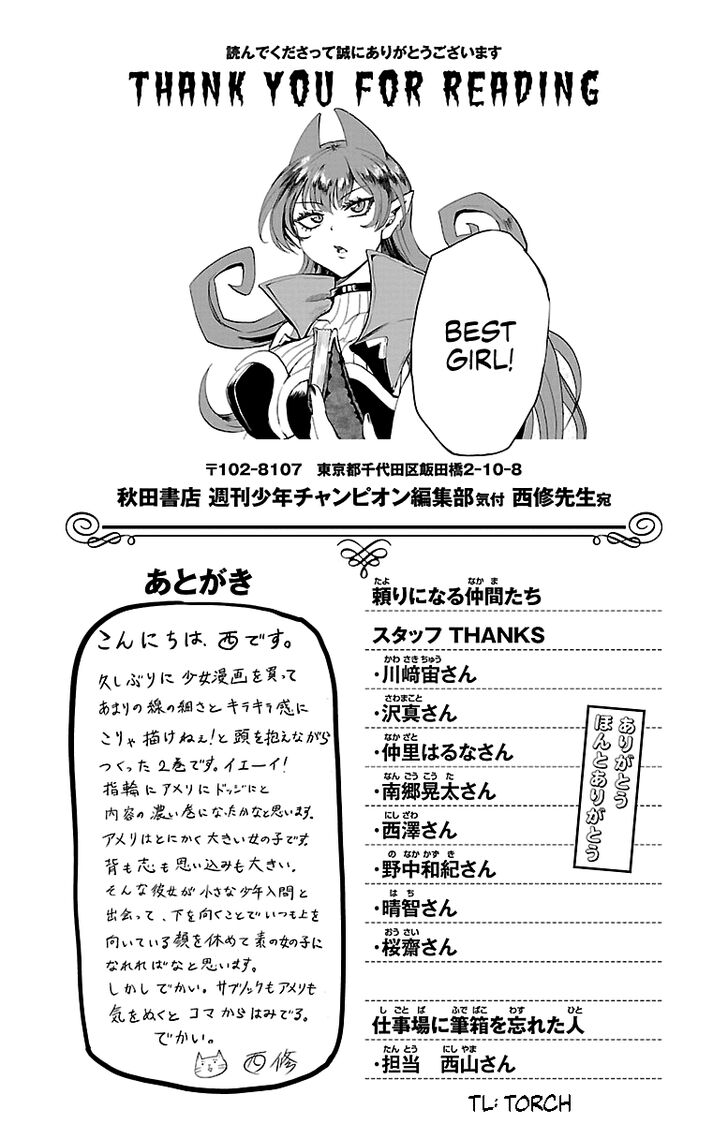 読んでくださって誠にありがとうございます
THANK YOU FOR READING
BEST
GIRL!
〒102-8107 東京都千代田区飯田橋2-10-8
秋田書店 週刊少年チャンピオン編集部気付 西修先生宛
あとがき
こんにちは、西です。
久しぶりに少女漫画を買って
あまりの線の細さとキラキラ感に
こりゃ描けねぇ!と頭を抱えながら
つくった2巻です。イエーイ!
指輪にアメリにドッジにと
内容の濃い巻になったかなと思います。
アメリはとにかく大きい女の子です。
背も志も思い込みも大きい。
そんな彼女が小さな少年入間と
出会って、下を向くことでいつも上を
向いている顔を休めて素の女の子に
なれればなと思います。
しかしでかい。サブノックもアメリも
気をぬくとコマからはみでる。
でかい。
西修
頼りになる仲間たち
たよ なかま
スタッフ THANKS
かわさきちゅう
・川﨑宙さん
さわまこと
・沢真さん
なかざと
・仲里はるなさん
なんごうこうた
・南郷晃太さん
にしざわ
・西澤さん
のなかかずき
・野中和紀さん
はち
・晴智さん
おうさい
・桜齋さん
ありがとう
ほんとありがとう
しごとば ふでばこ わす ひと
仕事場に筆箱を忘れた人
たんとう にしやま
・担当 西山さん
TL: TORCH